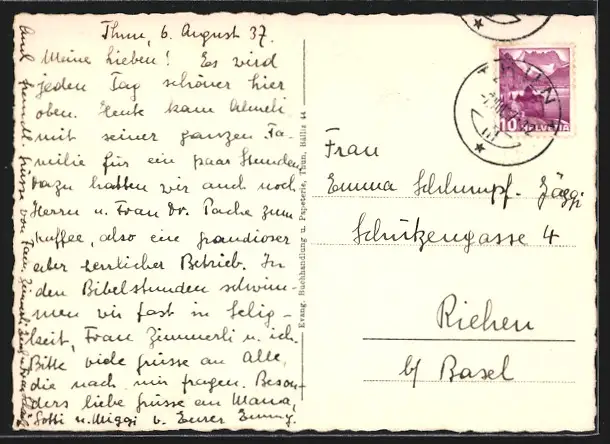 Thun, 6. August 37.
Meine Lieben! Es wird
jeden Tag schöner hier
oben. Heute kam
mit seiner ganzen Fa-
milie für ein paar Stunden
dazu hatten wir auch noch
Herrn u. Frau Dr. Pache zum
Kaffee, also ein grandioser
aber herrlicher Betrieb. In
den Bibelstunden schwim-
men wir fast in Selig-
keit, Frau Zimmerli u. ich.
Bitte viele Grüsse an Alle,
die nach mir fragen. Beson-
ders liebe Grüsse an Mama,
Gotti u. Miggi v. Eurer Emmy.
Auch freundl. Grüsse von Frau Zimmerli
Evang. Buchhandlung u. Papeterie, Thun, Hällis 44
THUN
10 HELVETIA
Frau
Emma Schlumpf-Jäggi
Schützengasse 4
Riehen
b/ Basel